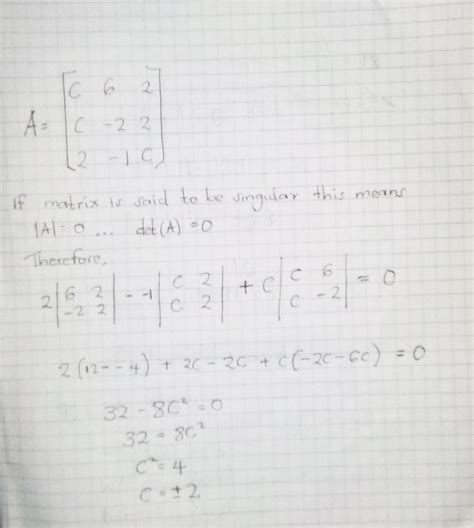 A = [C 6 2
C -2 2
2 -1 C]
If matrix is said to be singular this means
|A| = 0 ... det(A) = 0
Therefore,
2 |6 2; -2 2| - -1 |C 2; C 2| + C |C 6; C -2| = 0
2(12 - -4) + 2C - 2C + C(-2C - 6C) = 0
32 - 8C² = 0
32 = 8C²
C² = 4
C = ±2